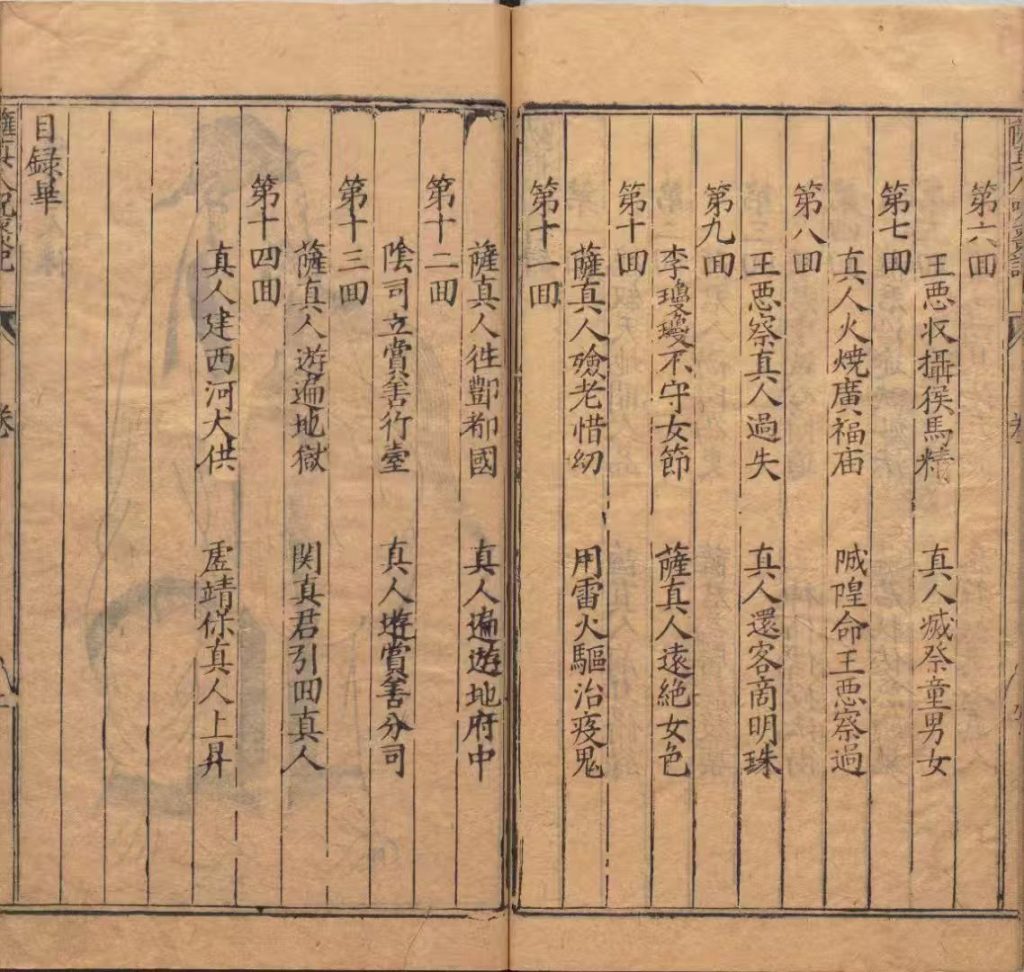 第六回
王惡收攝猴馬精　真人滅祭童男女
第七回
真人火燒廣福庙　城隍命王惡察過
第八回
王惡察真人過失　真人還客商明珠
第九回
李瓊瓊不守女節　薩真人遠絕女色
第十回
薩真人殮老惜幼　用雷火驅治疫鬼
第十一回
薩真人徃酆都國　真人遍遊地府中
第十二回
陰司立賞善行臺　真人遊賞善分司
第十三回
薩真人遊遍地獄　関真君引回真人
第十四回
真人建西河大供　虛靖保真人上昇
目録畢